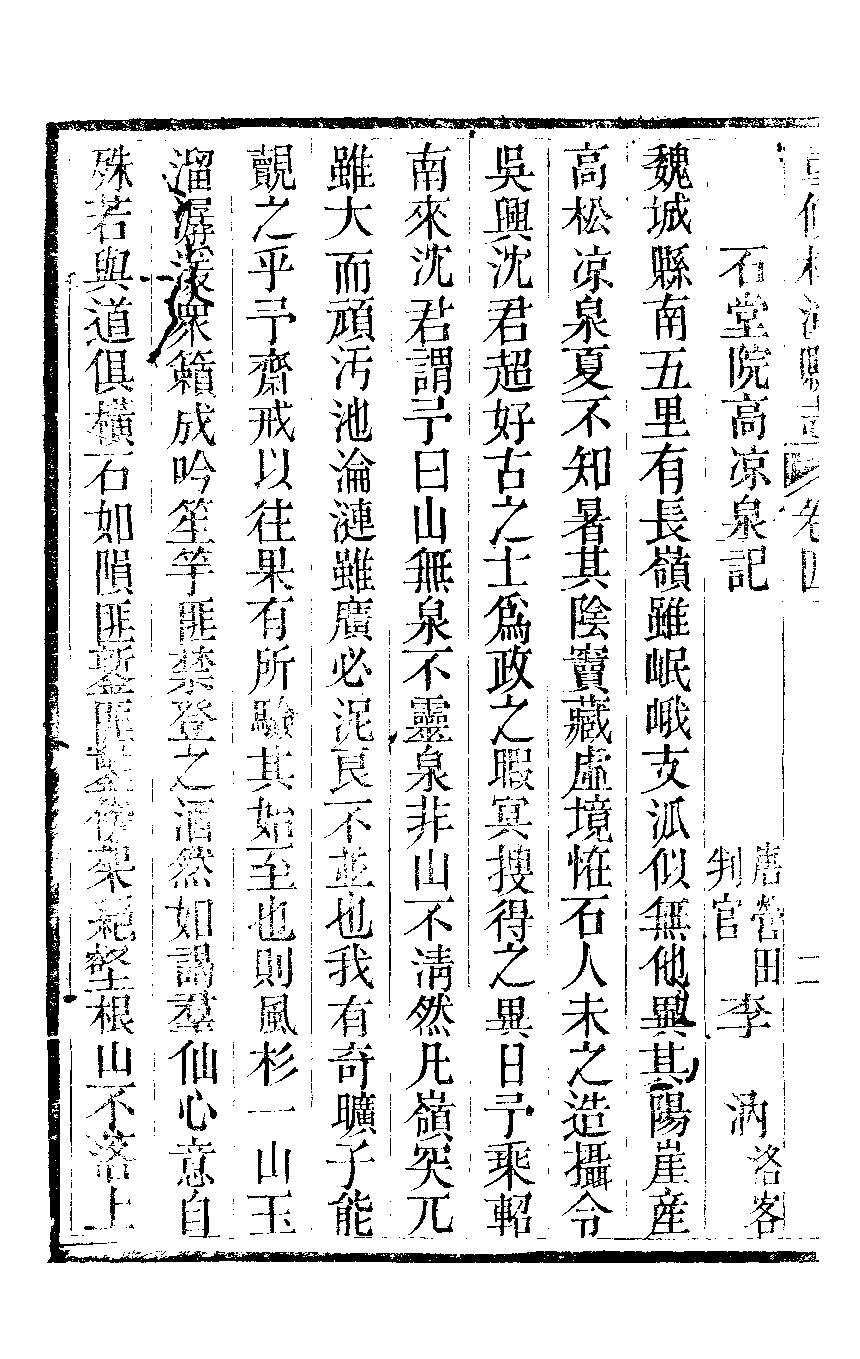 重修梓潼縣志 卷四 二
石堂院高凉泉記 唐營田判官李 洛客
魏城縣南五里有長嶺雖岷峨支派似無他異其陽崖産
高松凉泉夏不知暑其陰竇藏虛境恠石人未之造攝令
吳興沈君超好古之士爲政之暇冥搜得之異日予乘軺
南來沈君謂予曰山無泉不靈泉非山不淸然凡嶺突兀
雖大而頑汚池淪漣雖廣必泥良不並也我有奇曠子能
覿之乎予齋戒以往果有所驗其始至也則風杉一山玉
溜潺湲衆籟成吟笙竽匪禁登之洒然如謁羣仙心意自
殊若與道俱橫石如隕匪鏨匪鑿傍架絕壑根山不落上